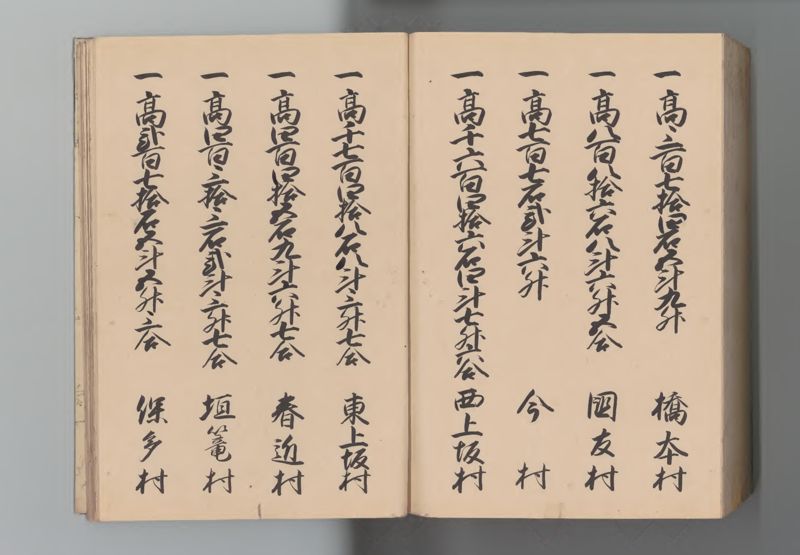 一高三百七拾四石五斗九升 橋本村
一高八百八拾六石八斗六升五合 國友村
一高七百七石貳斗六升 今村
一高千六百四拾六石四斗七升六合 西上坂村
一高千七百四拾八石八斗三升七合 東上坂村
一高四百四拾五石九斗六升七合 春近村
一高四百三拾三石貳斗三升七合 垣籠村
一高貳百七拾石五斗五升三合 保多村